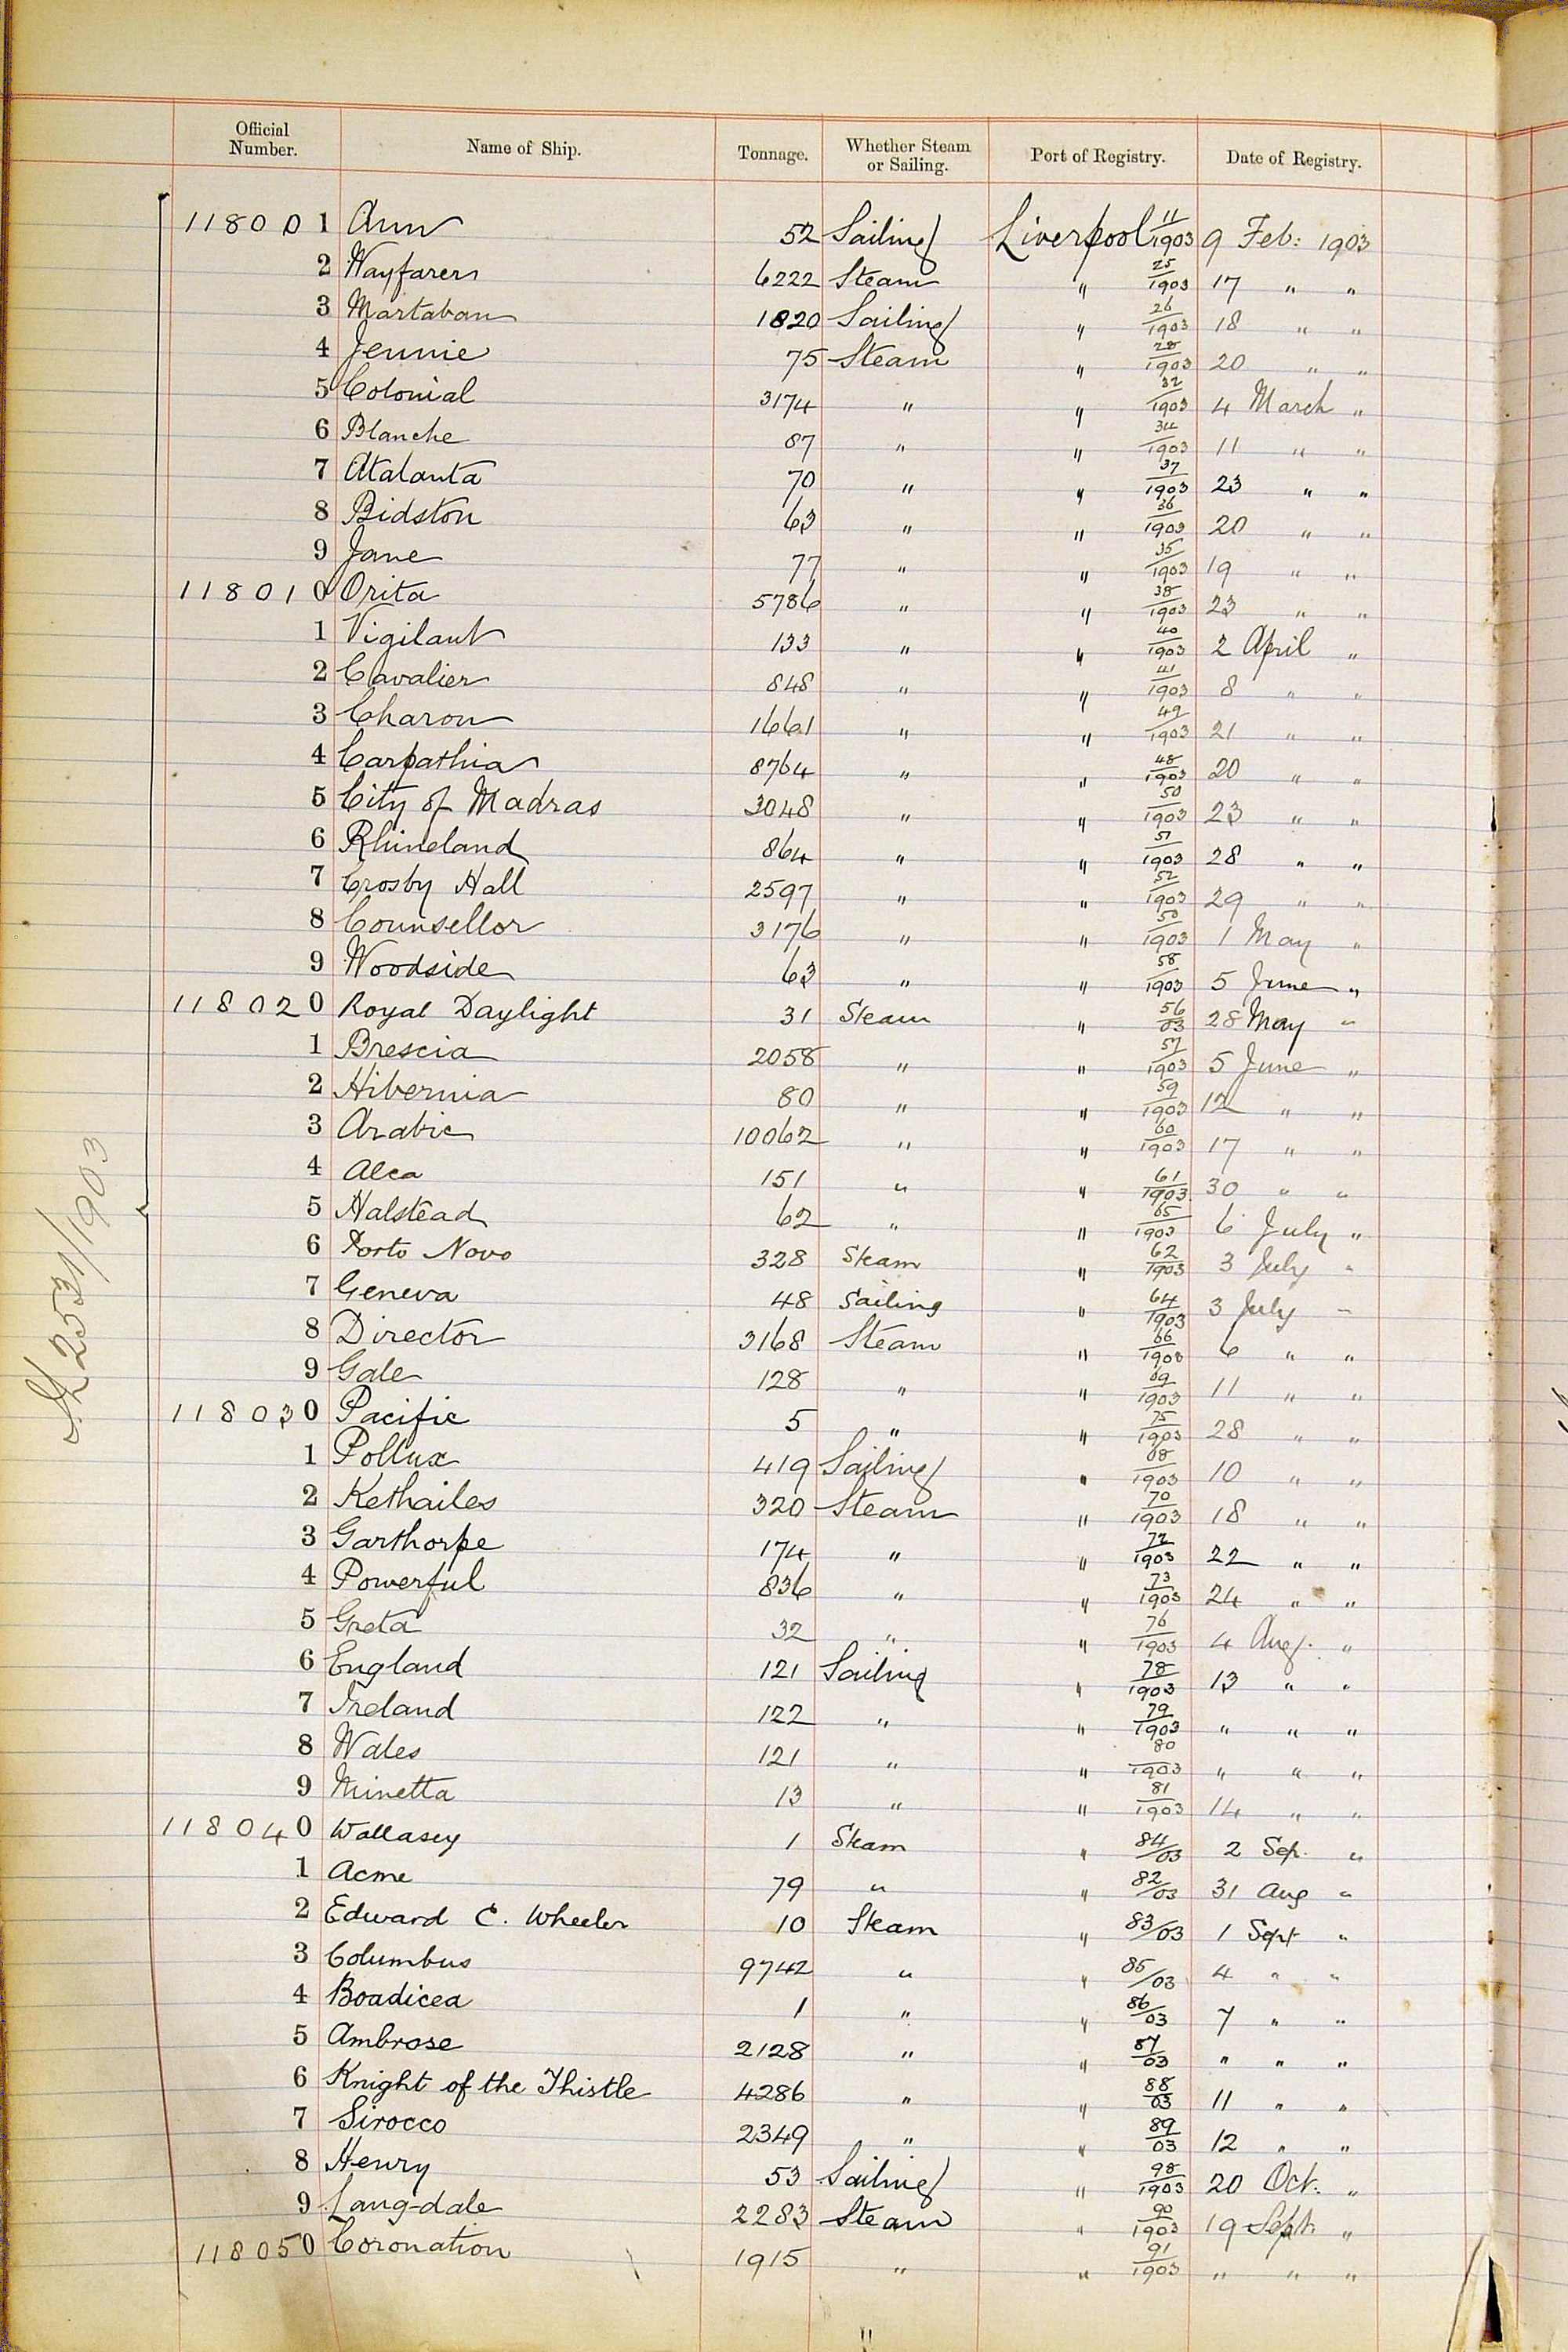 Official Number. Name of Ship. Tonnage. Whether Steam or Sailing. Port of Registry. Date of Registry.
118001 Ann 52 Sailing Liverpool 11/1903 9 Feb: 1903
2 Wayfarer 6222 Steam " 25/1903 17 " "
3 Martaban 1820 Sailing " 26/1903 18 " "
4 Jennie 75 Steam " 28/1903 20 " "
5 Colonial 3174 " " 32/1903 4 March "
6 Blanche 87 " " 34/1903 11 " "
7 Atalanta 70 " " 37/1903 23 " "
8 Bidston 63 " " 36/1903 20 " "
9 Jane 77 " " 35/1903 19 " "
118010 Orita 5786 " " 38/1903 23 " "
1 Vigilant 133 " " 40/1903 2 April "
2 Cavalier 848 " " 41/1903 8 " "
3 Charon 1661 " " 49/1903 21 " "
4 Carpathia 8764 " " 48/1903 20 " "
5 City of Madras 3048 " " 50/1903 23 " "
6 Rhineland 864 " " 51/1903 28 " "
7 Crosby Hall 2597 " " 52/1903 29 " "
8 Counsellor 3176 " " 1903 1 May "
9 Woodside 63 " " 58/1903 5 June "
118020 Royal Daylight 31 Steam " 56/03 28 May "
1 Brescia 2058 " " 57/1903 5 June "
2 Hibernia 80 " " 59/1903 12 " "
3 Arabic 10062 " " 60/1903 17 " "
4 Alca 151 " " 61/1903 30 " "
5 Halstead 62 " " 65/1903 6 July "
6 Porto Novo 328 Steam " 62/1903 3 July "
7 Geneva 48 Sailing " 64/1903 3 July "
8 Director 3168 Steam " 66/1903 6 " "
9 Gale 128 " " 69/1903 11 " "
118030 Pacific 5 " " 75/1903 28 " "
1 Pollux 419 Sailing " 68/1903 10 " "
2 Kethailes 320 Steam " 70/1903 18 " "
3 Garthorpe 174 " " 72/1903 22 " "
4 Powerful 836 " " 73/1903 24 " "
5 Greta 32 " " 76/1903 4 Aug. "
6 England 121 Sailing " 78/1903 13 " "
7 Ireland 122 " " 79/1903 " " "
8 Wales 121 " " 80/1903 " " "
9 Minetta 13 " " 81/1903 14 " "
118040 Wallasey 1 Steam " 84/03 2 Sep. "
1 Acme 79 " " 82/03 31 Aug "
2 Edward C. Wheeler 10 Steam " 83/03 1 Sept "
3 Columbus 9742 " " 85/03 4 " "
4 Boadicea 1 " " 86/03 7 " "
5 Ambrose 2128 " " 87/03 " " "
6 Knight of the Thistle 4286 " " 88/03 11 " "
7 Sirocco 2349 " " 89/03 12 " "
8 Henry 53 Sailing " 98/1903 20 Oct. "
9 Langdale 2283 Steam " 90/1903 19 Sept. "
118050 Coronation 1915 " " 91/1903 " " "
2531/1903